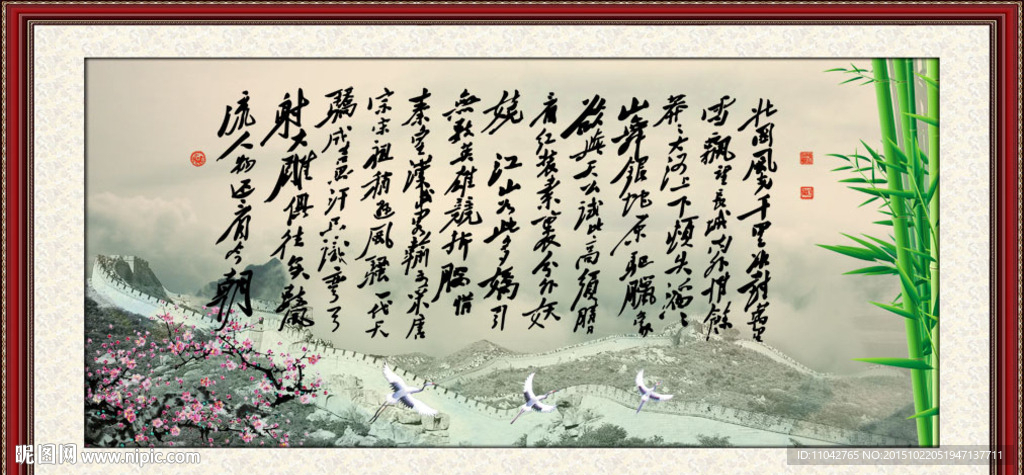 北国风光千里冰封万里
雪飘望长城内外惟馀
莽莽大河上下顿失滔滔
山舞银蛇原驰腊象
欲与天公试比高须晴日
看红装素裹分外妖
娆 江山如此多娇引
无数英雄竞折腰惜
秦皇汉武略输文采唐
宗宋祖稍逊风骚一代天
骄成吉思汗只识弯弓
射大雕俱往矣数风
流人物还看今朝
昵图网 www.nipic.com
ID:11042765 NO:20151022051947137711